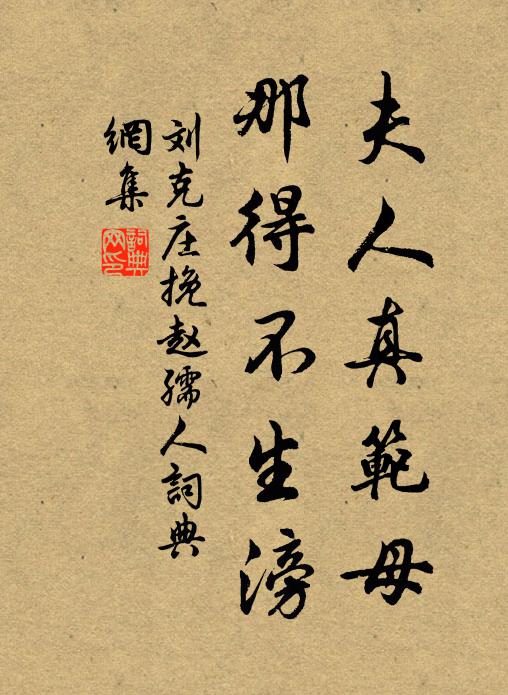 夫人真範母
那得不生滂
刘克庄挽赵孺人詞典
網集
詞典網印